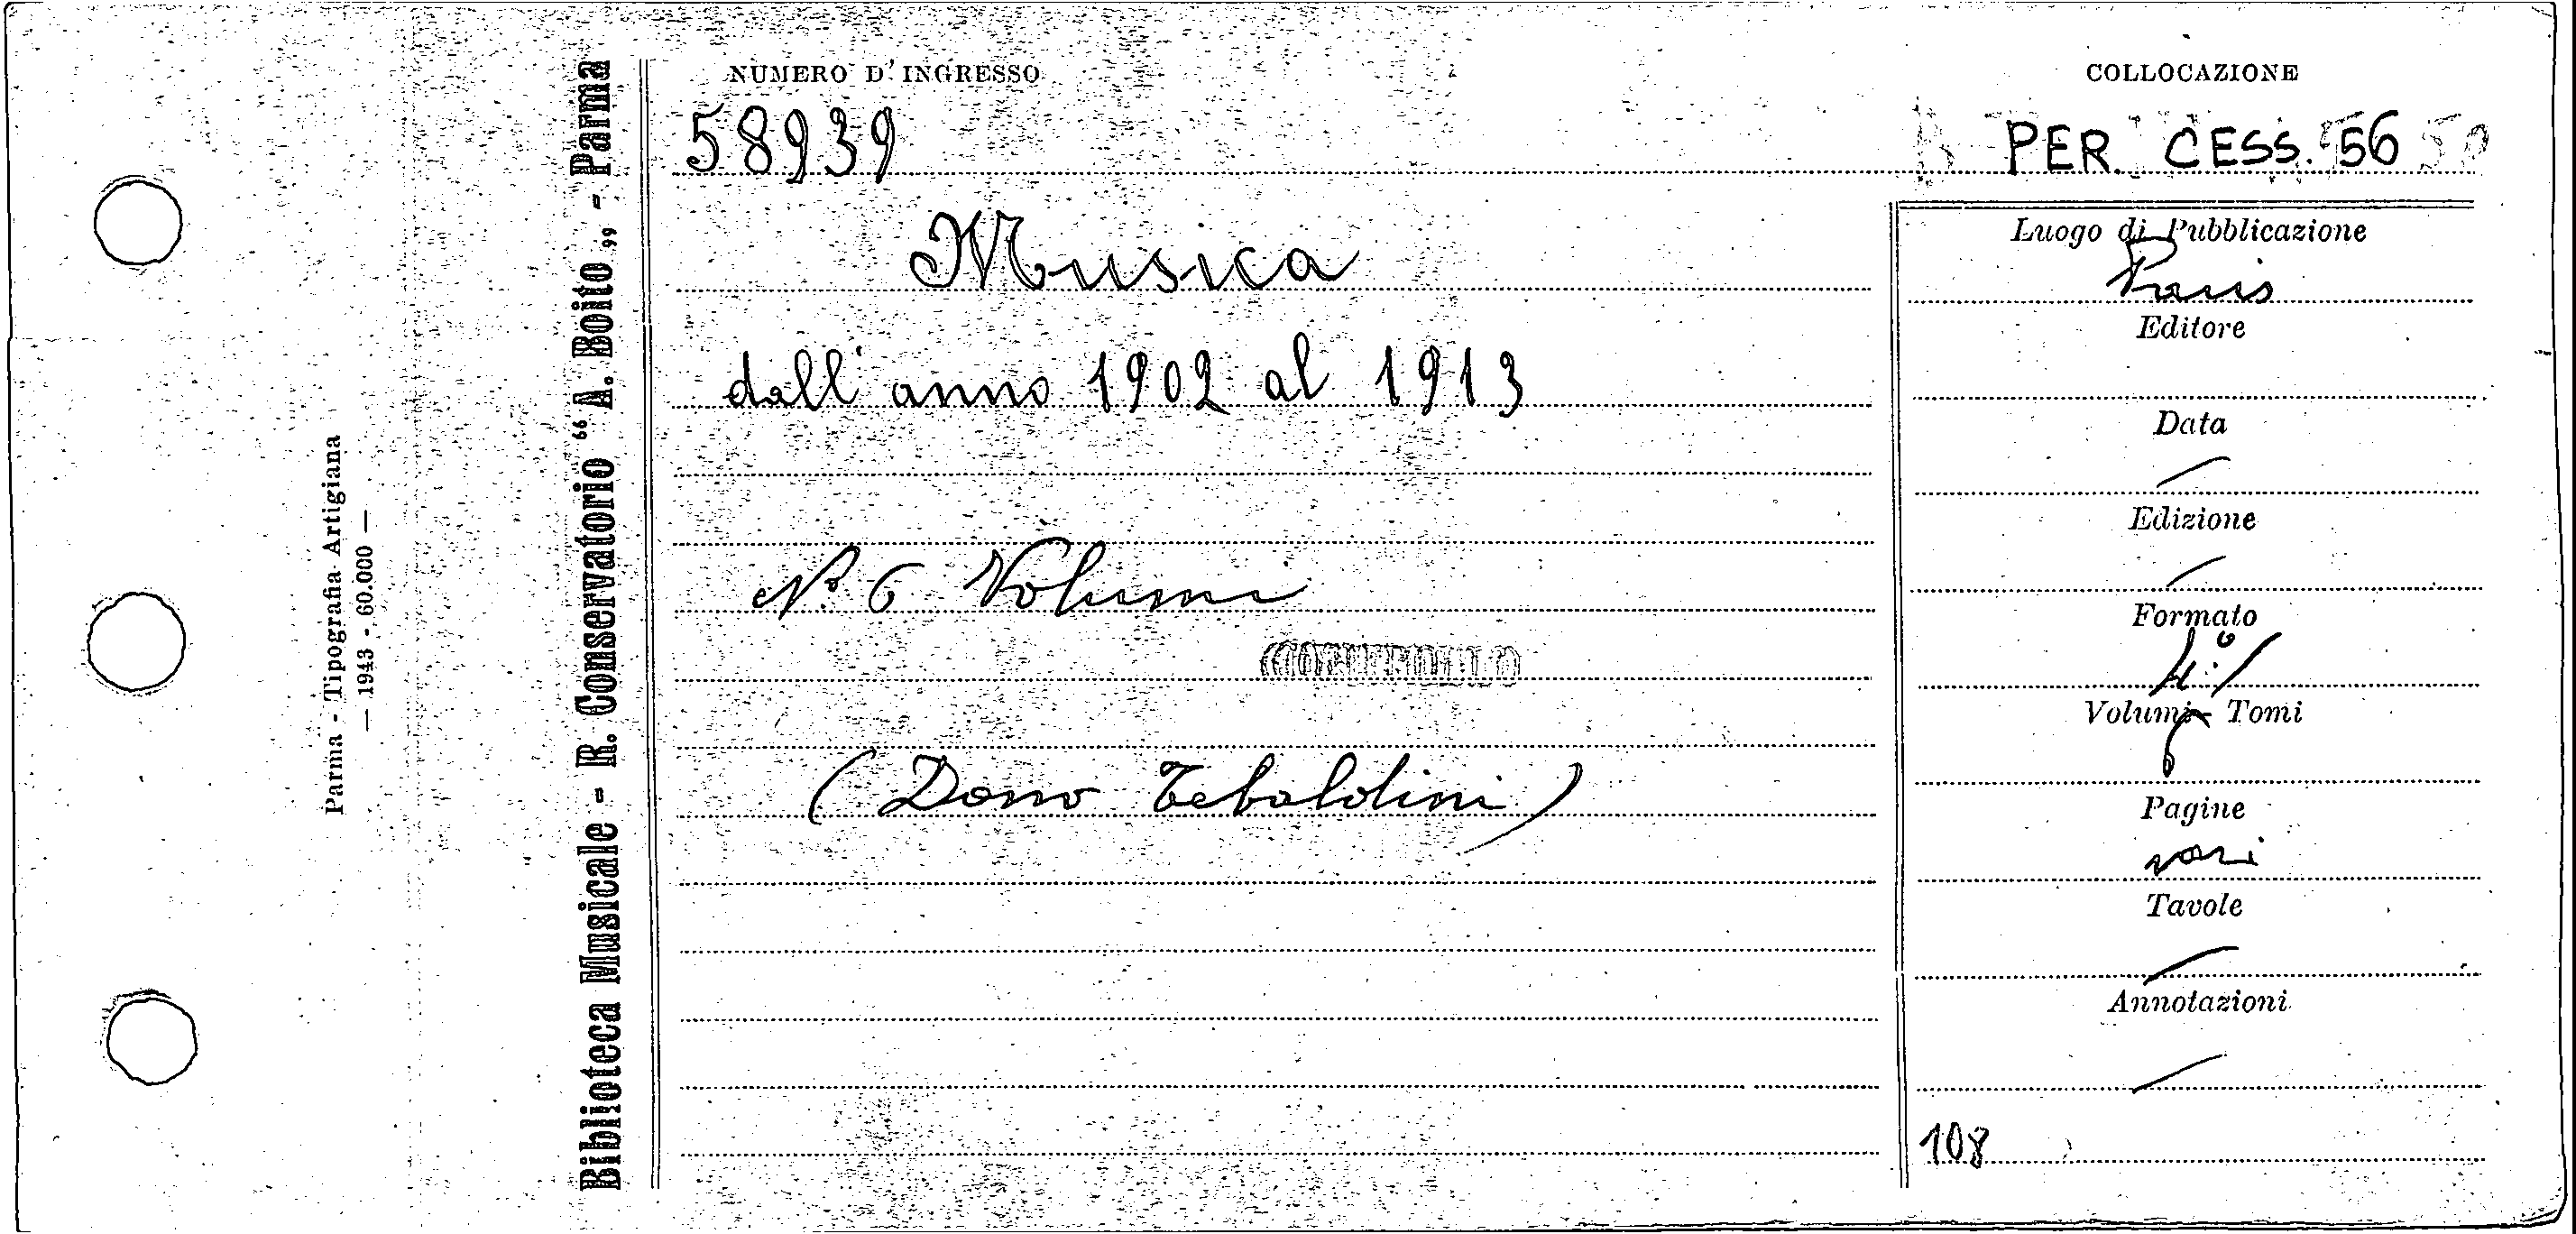 NUMERO D'INGRESSO
COLLOCAZIONE
58939
PER. CESS. 56
Musica
dall'anno 1902 al 1913
N.° 6 Volumi
(Dono Tebaldini)
Luogo di Pubblicazione
Paris
Editore
Data
Edizione
Formato
4°
Volumi - Tomi
6
Pagine
vari
Tavole
Annotazioni
108
Biblioteca Musicale - R. Conservatorio “A. Boito„ - Parma
Parma - Tipografia Artigiana
— 1943 - 60.000 —